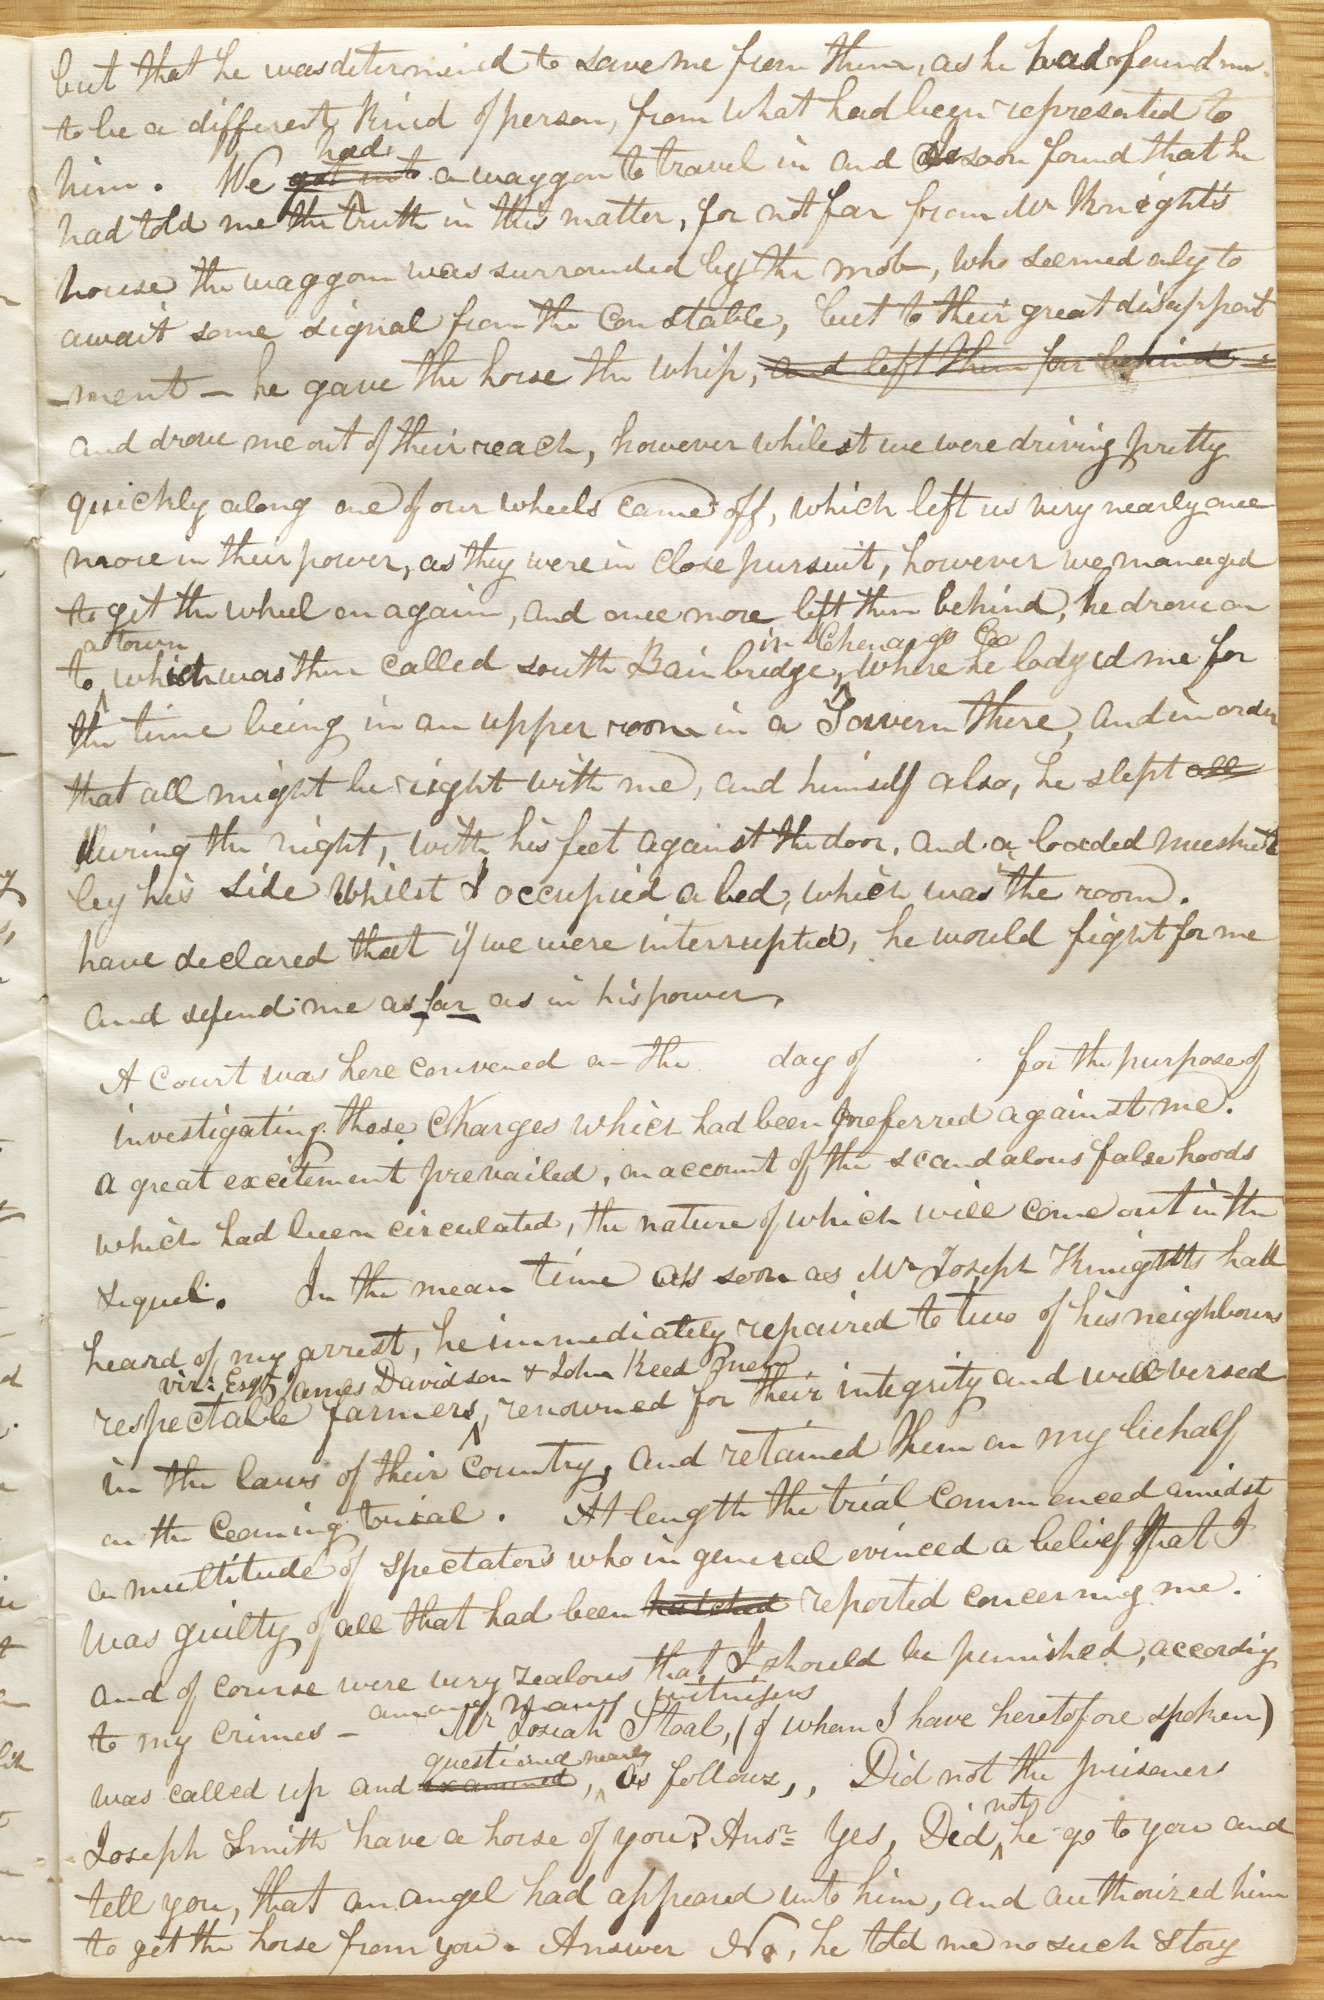 but that he was determined to save me from them, as he had found me
to be a different kind of person, from what had been represented to
had
him. We got into a waggon to travel in and soon found that he
had told me the truth in this matter, for not far from Mr Knight's
house the waggon was surrounded by the mob, who seemed only to
await some signal from the Constable, but to their great disappoint
-ment - he gave the horse the whip, and left them far behind
and drove me out of their reach, however whilest we were driving pretty
quickly along one of our wheels came off, which left us very nearly once
more in their power, as they were in close pursuit, however we managed
to get the wheel on again, and once more left them behind, he drove on
a town in Chenango Co
to which was then called south Bainbridge, where he lodged me for
the time being in an upper room in a Tavern there, and in order
that all might be right with me, and himself also, he slept all
during the night, with his feet against the door, and a loaded musket
by his side whilst I occupied a bed, which was the room.
have declared that if we were interrupted, he would fight for me
and defend me as far as in his power.
A Court was here convened on the day of for the purpose of
investigating those charges which had been preferred against me.
a great excitement prevailed, on account of the scandalous falsehoods
which had been circulated, the nature of which will come out in the
sequel. In the mean time as soon as Mr Joseph Knights had
heard of my arrest, he immediately repaired to two of his neighbours
viz: Esqr James Davidson & John Reed men
respectable farmers, renowned for their integrity and well versed
in the laws of their Country, and retained them on my behalf
on the coming trial. At length the trial commenced amidst
a multitude of spectators who in general evinced a belief that I
was guilty of all that had been hatched reported concerning me.
and of course were very zealous that I should be punished, accordig
among many witnisses
to my crimes - Mr Josiah Stoal, (of whom I have heretofore spoken)
questioned nearly
was called up and examined, as follows,, Did not the prisoner
not
Joseph Smith have a horse of you? Ansr= Yes, Did he go to you and
tell you, that an angel had appeared unto him, and authorized him
to get the horse from you. Answer No, he told me no such story